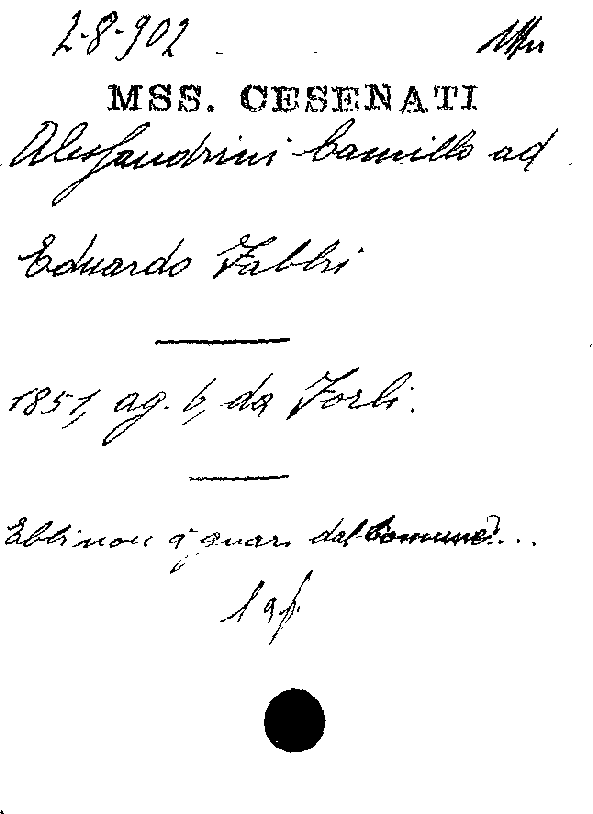 2-8-902
MSS. CESENATI
Alessandrini Camillo ad
Eduardo Fabbri
1851, ag. 6, da Forlì.
Ebbi non è guari dal Comune...
1 af.